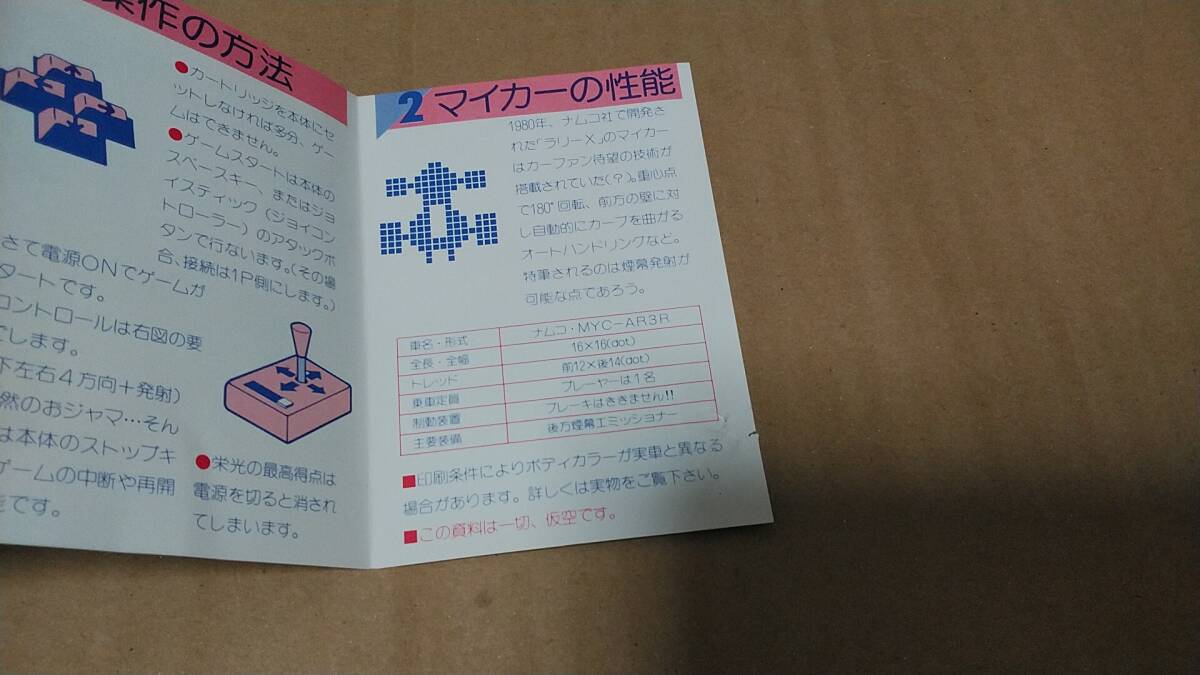 操作の方法
●カートリッジを本体にセ
ットしなければ多分、ゲー
ムはできません。
●ゲームスタートは本体の
スペースキー、またはジョ
イスティック（ジョイコン
トローラー）のアタックボ
タンで行ないます。(その場
合、接続は1P側にします。)
さて電源ONでゲームが
タートです。
コントロールは右図の要
でします。
下左右4方向＋発射)
然のおジャマ…そん
は本体のストップキ
ゲームの中断や再開
能です。
●栄光の最高得点は
電源を切ると消され
てしまいます。
2 マイカーの性能
1980年、ナムコ社で開発さ
れた「ラリーX」のマイカー
はカーファン待望の技術が
搭載されていた(？)。重心点
で180°回転、前方の壁に対
し自動的にカーブを曲がる
オートハンドリングなど。
特筆されるのは煙幕発射が
可能な点であろう。
車名・形式 ナムコ・MYC－AR3R
全長・全幅 16×16(dot)
トレッド 前12×後14(dot)
乗車定員 プレーヤーは1名
制動装置 ブレーキはききません!!
主要装備 後方煙幕エミッショナー
■印刷条件によりボディカラーが実車と異なる
場合があります。詳しくは実物をご覧下さい。
■この資料は一切、仮空です。